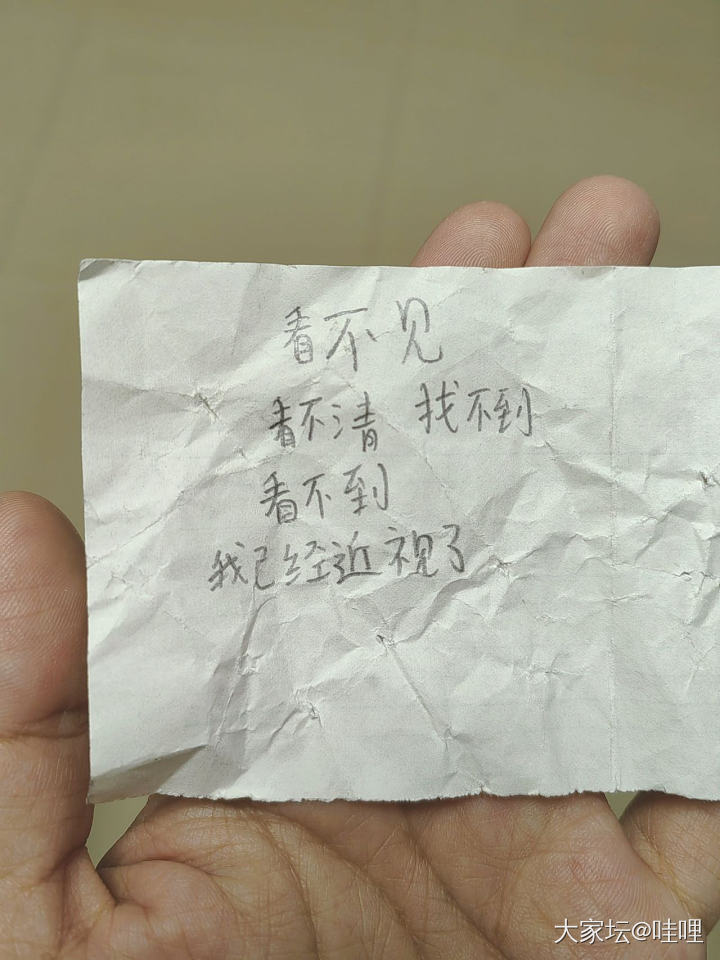 看不见
看不清 找不到
看不到
我已经近视了
大家坛@哇哩